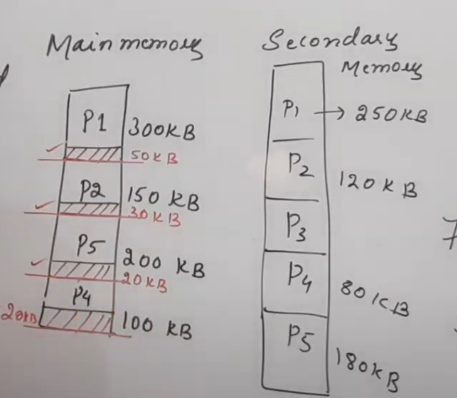 Main memory
P1
300KB
50KB
P2
150 KB
30KB
P5
200 KB
20KB
P4
20KB
100 KB
Secondary
Memory
P1 → 250KB
P2
120KB
P3
P4
80KB
P5
180KB